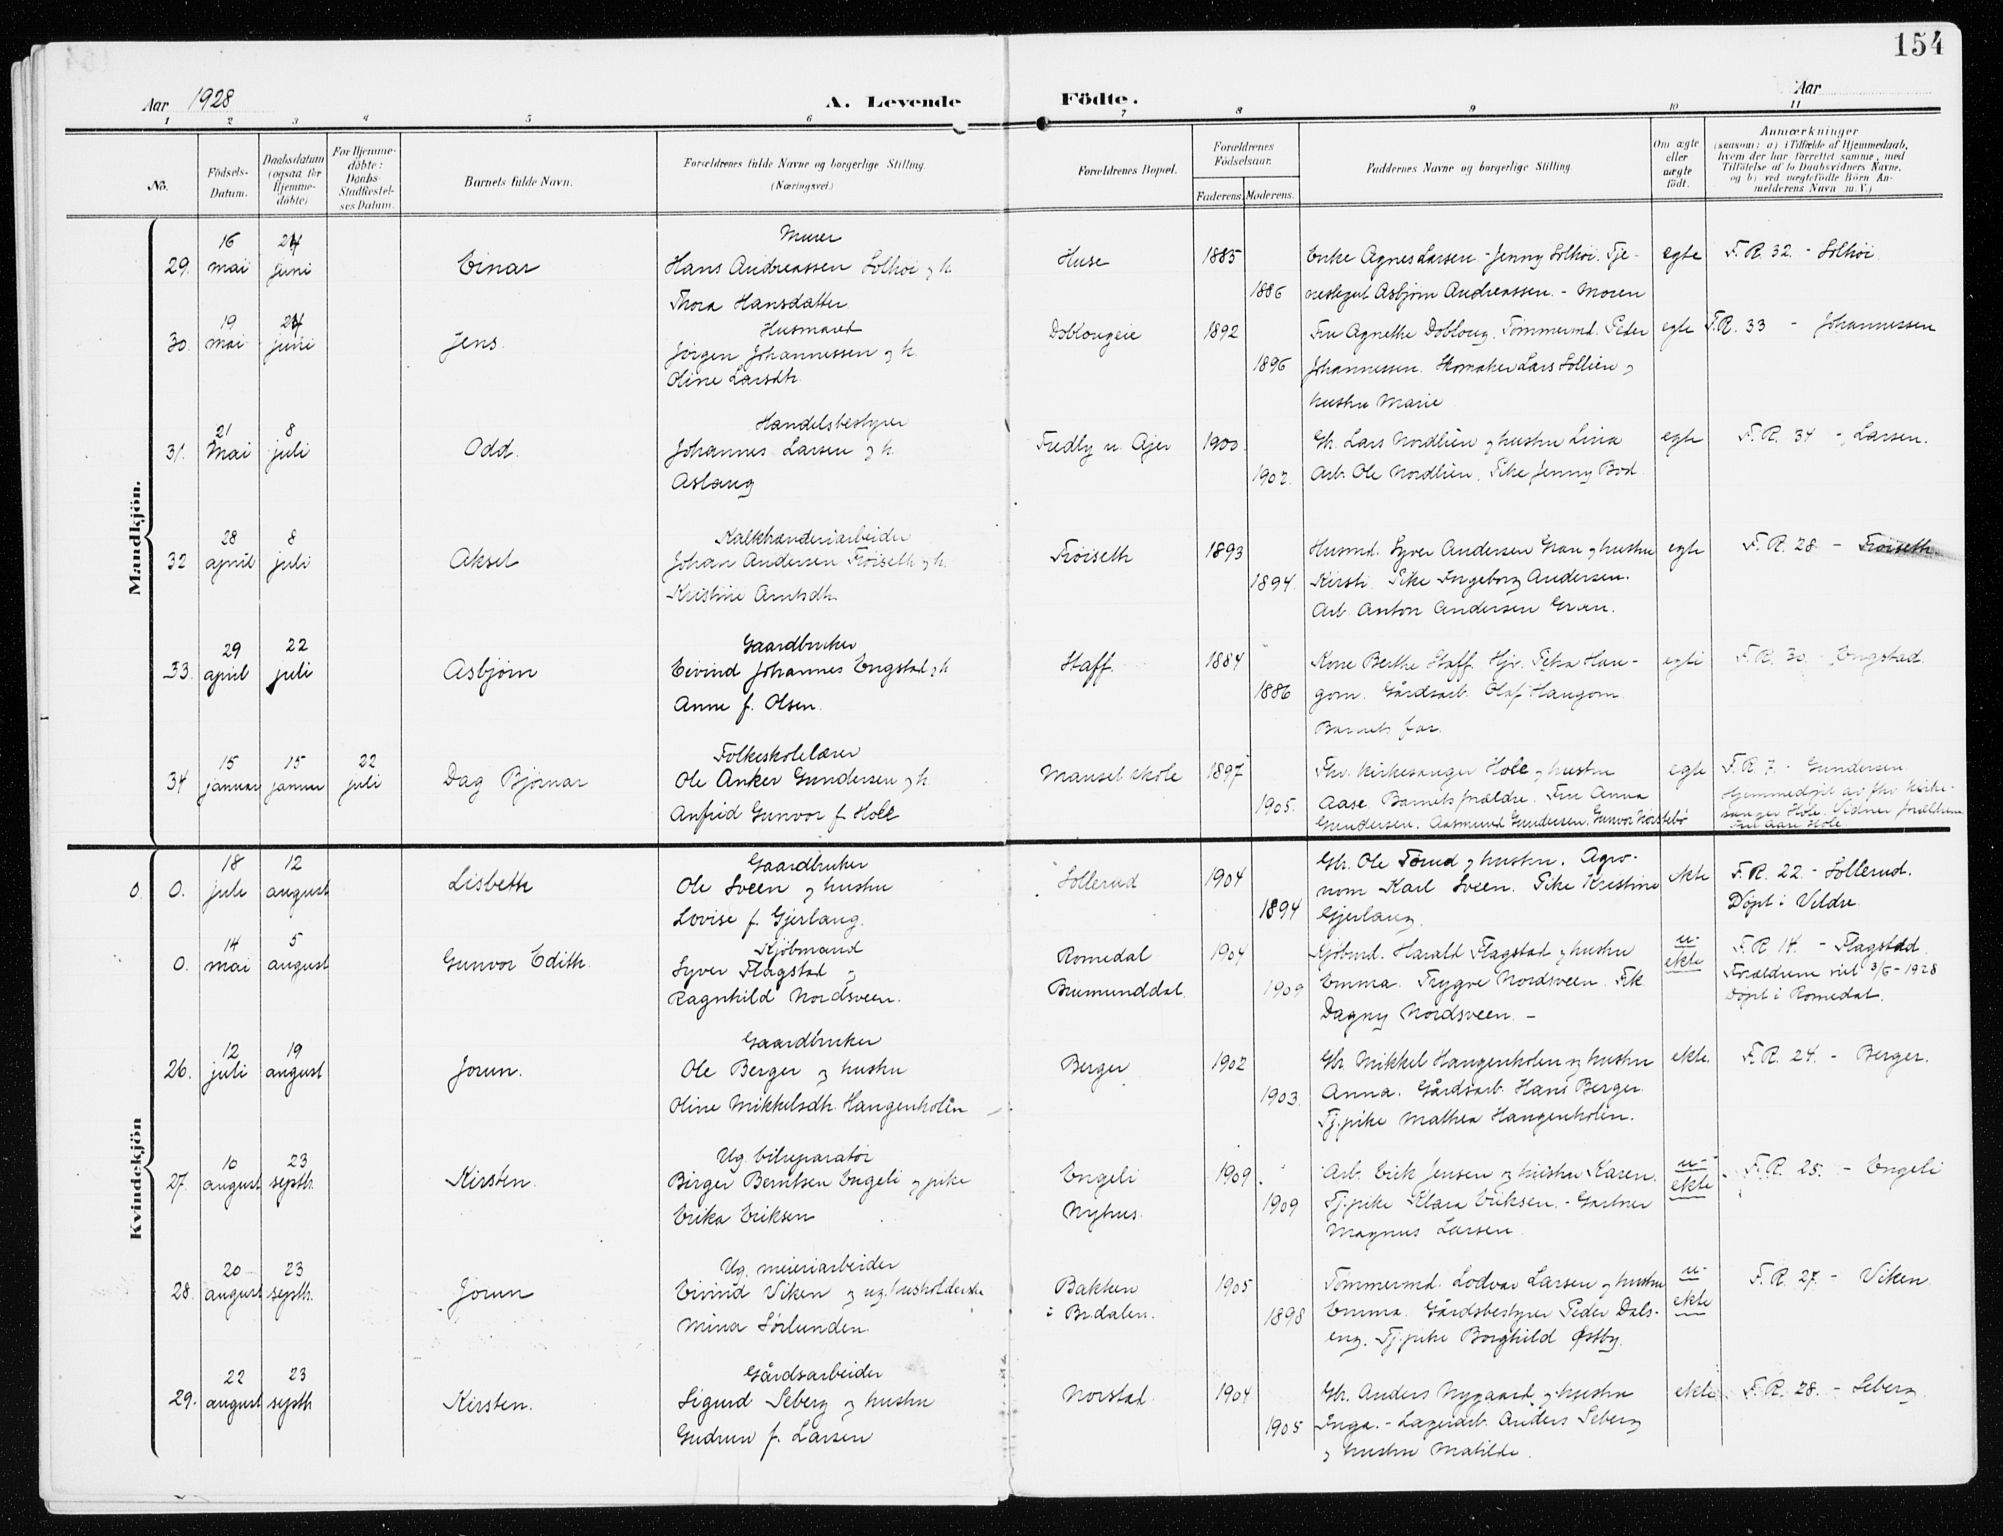 154
Aar 1928
A. Levende Födte.
Aar
1 2 3 4 5 6 7 8 9 10 11
No.
Födsels-
Datum.
Daabsdatum
(ogsaa for
Hjemme-
döbte)
For Hjemme-
döbte:
Daabs-
Stadfæstel-
ses Datum.
Barnets fulde Navn.
Forældrenes fulde Navne og borgerlige Stilling.
(Næringsvei.)
Forældrenes Bopæl.
Forældrenes
Födselsaar.
Faderens. Moderens.
Faddernes Navne og borgerlige Stilling.
Om ægte
eller
uægte
født.
Anmærkninger
(saasom: a) i Tilfælde af Hjemmedaab,
hvem der har forrettet samme, med
Tilföielse af to Daabsvidners Navne,
og b) ved uægtefödte Börn An-
melderens Navn m. V.)
Mandkjön.
29. 16 mai 24 juni Einar
Murer
Hans Andreassen Solhöi og h.
Thora Hansdatter
Huse 1885 1886
Enke Agnes Larsen - Jenny Solhöi. Tje-
nestegut Asbjörn Andreassen. - Moren
egte F.R. 32. - Solhöi.
30. 19 mai 24 juni Jens.
Husmand
Jörgen Johannessen og h.
Oline Larsdtr.
Doblougeie 1892 1896
Fru Agnethe Dobloug. Tömmermd. Peder
Johannessen. Skomaker Lars Sollien og
hustru Marie
egte F.R. 33 - Johannessen
31. 21 Mai 8 juli Odd.
Handelsbestyrer
Johannes Larsen og h.
Aslaug
Fredly n. Ajer 1900. 1902.
Gb. Lars Nordlien og hustru Lina
Arb. Ole Nordlien. Pike Jenny Bod.
egte F.R. 34 - Larsen.
32 28 april 8 juli Aksel
Kalkbrænderiarbeider
Johan Andersen Fröiseth og h.
Kristine Arntsdtr.
Fröiseth 1893 1894.
Husmd. Syver Andersen Gran og hustru
Kirsti. Pike Ingeborg Andersen.
Arb. Anton Andersen Gran.
egte F.R. 28 - Fröiseth
33. 29 april 22 juli Asbjørn
Gaardbruker
Eivind Johannes Engstad og h
Anne f. Olsen.
Staff. 1884 1886
Kone Berthe Staff. Hjv. Petra Hau-
gom. Gårdsarb. Olaf Haugom.
Barnets far.
egte F.R. 30 - Engstad.
34 15 januar 15 januar 22 juli Dag Bjørnar
Folkeskolelærer
Ole Anker Gundersen og h.
Anfrid Gunvor f. Hole
Mauset skole 1897 1905.
Fhv. kirkesanger Hole og hustru
Aase Barnets forældre. Fru Anna
Gundersen. Aasmund Gundersen. Gunvor Norstebø
egte F.R. 7 - Gundersen.
Hjemmedøpt av fhv. kirke-
sanger Hole. Vidner forældrene
Kvindekjön
0. 0. 18 juli 12 august Lisbeth
Gaardbruker
Ole Sveen og hustru
Lovise f. Gjerlaug.
Sollerud 1904 1894
Gb. Ole Törud og hustru. Agro-
nom Karl Sveen. Pike Kristine
Gjerlaug
ekte F.R. 22 - Sollerud.
Døpt i Veldre.
0. 14 mai 5 august Gunvor Edith.
Kjöbmand
Syver Flagstad og
Ragnhild Nordsveen.
Romedal
Brumunddal. 1904 1909
Kjöbmd. Harald Flagstad og hustru
Emma. Trygve Nordsveen. Frk
Dagny Nordsveen. -
u-
ekte
F.R. 14. - Flagstad.
Forældrene viet 3/6 - 1928
Døpt i Romedal.
26. 12 juli 19 august Jorun.
Gaardbruker
Ole Berger og hustru
Oline Mikkelsdtr. Hangenholen
Berger 1902 1903.
Gb. Mikkel Hangenholen og hustru
Anna. Gårdsarb. Hans Berger.
Tj.pike Mathea Hangenholen.
ekte. F.R. 24. - Berger.
27. 10 august 23 septbr. Kirsten.
Ug. bilreparatör
Birger Berntsen Engeli og pike
Erika Eriksen
Engeli
Nyhus. 1909. 1909
Arb. Erik Jensen og hustru Karen.
Tj.pike Klara Eriksen. - Gartner
Magnus Larsen.
u-
ekte
F.R. 25. - Engeli
28. 20 august 23 septbr. Jorun
Ug. meieriarbeider
Eivind Viken og ug. husholderske
Mina Sörlunden.
Bakken
i Br.dalen. 1905 1898
Tömmermd. Lodvar Larsen og hustru
Emma. Gårdsbestyrer Peder Dals-
eng. Tj.pike Borghild Østby.
u-
ekte
F.R. 27 - Viken.
29. 22 august 23 septbr. Kirsten.
Gårdsarbeider
Sigurd Seberg og hustru
Gudrun f. Larsen
Norstad. 1904 1905
Gb. Anders Nygaard og hustru
Inga. - Lagerarb. Anders Seberg
og hustru Matilde.
ekte F.R. 28. - Seberg.